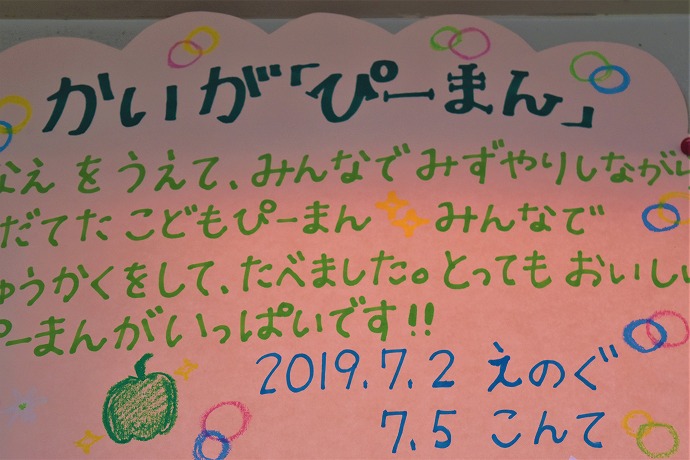 かいが「ぴーまん」
なえをうえて、みんなでみずやりしながら
だてたこどもぴーまん みんなで
ゅうかくをして、たべました。とってもおいしい
ぴーまんがいっぱいです!!
2019.7.2 えのぐ
7.5 こんて